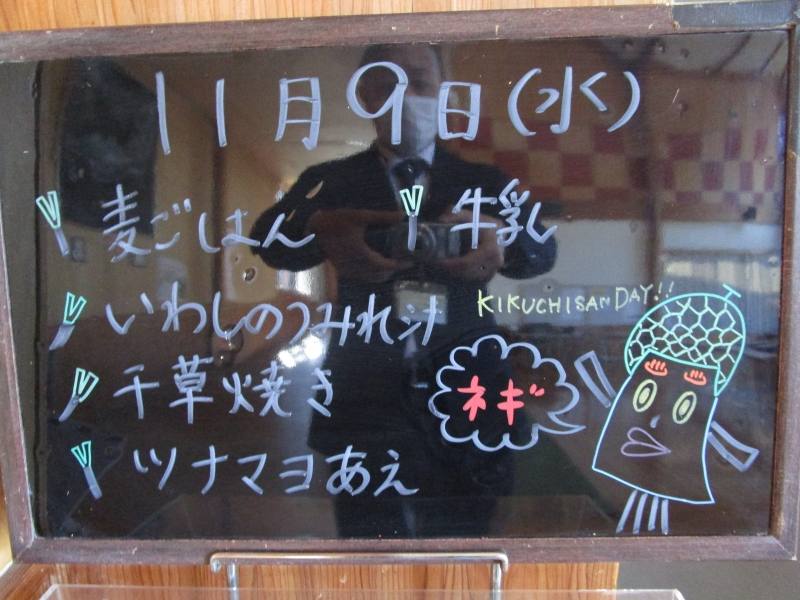 11月9日(水)
麦ごはん 牛乳
いわしのつみれ汁
KIKUCHISAN DAY!!
千草焼き
ネギ
ツナマヨあえ